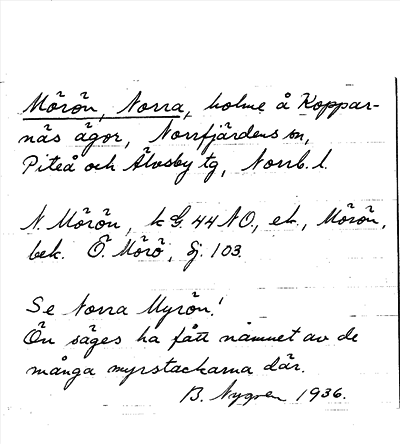 Mörön, Norra, holme å Koppar-
näs ägor, Norrfjärdens sn,
Piteå och Älvsby tg, Norrb. l.
N. Mörön, k G. 44 NO., ek., Mörön,
bek. Ö. Mörö, Gj. 103.
Se Norra Myrön!
Ön säges ha fått namnet av de
många myrstackarna där.
B. Nygren 1936.